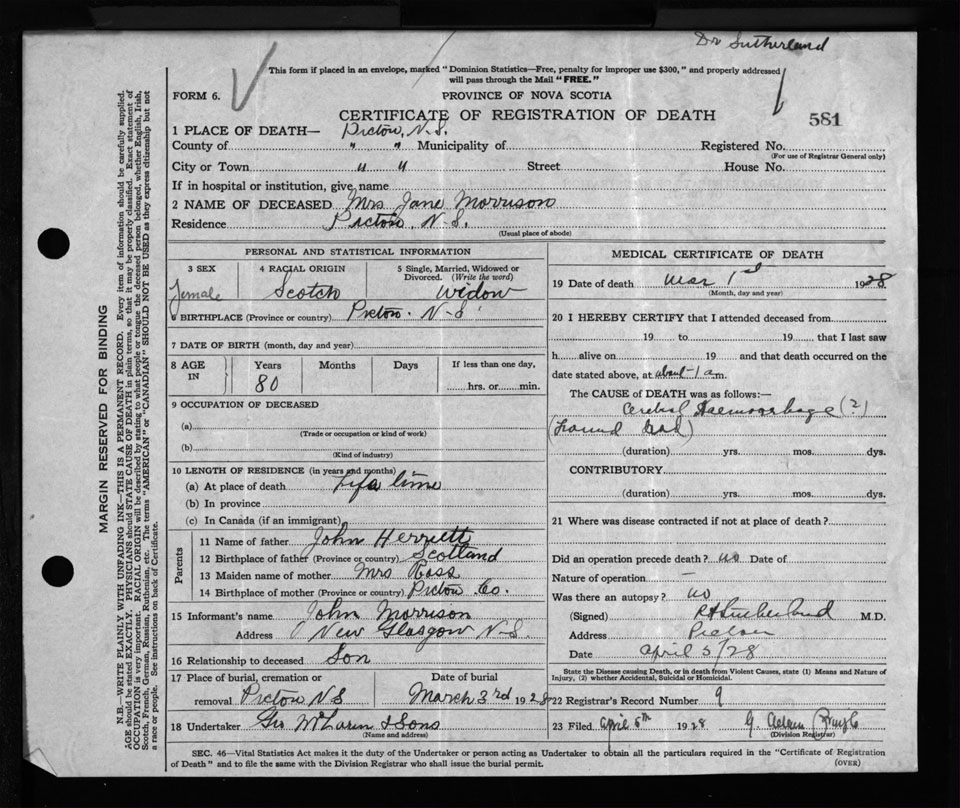 Dr Sutherland
This form if placed in an envelope, marked "Dominion Statistics—Free, penalty for improper use $300," and properly addressed
will pass through the Mail "FREE."
FORM 6.
PROVINCE OF NOVA SCOTIA
CERTIFICATE OF REGISTRATION OF DEATH
581
1 PLACE OF DEATH— Pictou, N.S.
County of " " Municipality of Registered No.
(For use of Registrar General only)
City or Town " " Street House No.
If in hospital or institution, give name
2 NAME OF DECEASED Mrs Jane Morrison
Residence Pictou, N-S.
(Usual place of abode)
PERSONAL AND STATISTICAL INFORMATION
3 SEX 4 RACIAL ORIGIN 5 Single, Married, Widowed or
Divorced. (Write the word)
Female Scotch Widow
6 BIRTHPLACE (Province or country) Pictou. N-S
7 DATE OF BIRTH (month, day and year)
8 AGE IN Years Months Days If less than one day,
80 hrs. or min.
9 OCCUPATION OF DECEASED
(a)
(Trade or occupation or kind of work)
(b)
(Kind of industry)
10 LENGTH OF RESIDENCE (in years and months)
(a) At place of death Life time
(b) In province
(c) In Canada (if an immigrant)
Parents
11 Name of father John Herriett
12 Birthplace of father (Province or country) Scotland
13 Maiden name of mother Mrs Ross
14 Birthplace of mother (Province or country) Pictou Co.
15 Informant's name John Morrison
Address New Glasgow N-S.
16 Relationship to deceased Son
17 Place of burial, cremation or Date of burial
removal Pictou NS March 3rd 1928
18 Undertaker Geo McLaren & Sons
(Name and address)
MEDICAL CERTIFICATE OF DEATH
19 Date of death Mar 1st 1928
(Month, day and year)
20 I HEREBY CERTIFY that I attended deceased from
19 to 19 that I last saw
h alive on 19 and that death occurred on the
date stated above, at about 1 a m.
The CAUSE of DEATH was as follows:—
Cerebral Haemorrhage (?)
(Found dead)
(duration) yrs. mos. dys.
CONTRIBUTORY
(duration) yrs. mos. dys.
21 Where was disease contracted if not at place of death?
Did an operation precede death? no Date of
Nature of operation —
Was there an autopsy? no
(Signed) Sutherland M.D.
Address Pictou
Date April 5/28
State the Disease causing Death, or in death from Violent Causes, state (1) Means and Nature of
Injury, (2) whether Accidental, Suicidal or Homicidal.
22 Registrar's Record Number 9
23 Filed April 5th 1928
(Division Registrar)
SEC. 46—Vital Statistics Act makes it the duty of the Undertaker or person acting as Undertaker to obtain all the particulars required in the "Certificate of Registration
of Death" and to file the same with the Division Registrar who shall issue the burial permit.
(OVER)
MARGIN RESERVED FOR BINDING
N.B.—WRITE PLAINLY WITH UNFADING INK—THIS IS A PERMANENT RECORD. Every item of information should be carefully supplied.
AGE should be stated EXACTLY. PHYSICIANS should STATE CAUSE OF DEATH in plain terms, so that it may be properly classified. Exact statement of
OCCUPATION is very important. RACIAL ORIGIN will be described by stating to what people or tongue the deceased person belonged, whether English, Irish,
Scotch, French, German, Russian, Ruthenian, etc. The terms "AMERICAN" or "CANADIAN" SHOULD NOT BE USED as they express citizenship but not
a race or people. See instructions on back of Certificate.